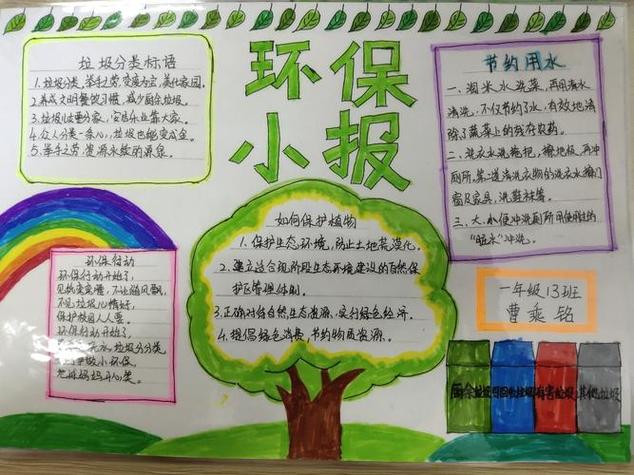 环保
小报
垃圾分类标语
1.垃圾分类，举手之劳，变废为宝，美化家园。
2.养成文明餐饮习惯，减少厨余垃圾。
4.众人分类一条心，垃圾也能变成金。
5.举手之劳，资源永续的源泉。
节约用水
一、淘米水洗菜，再用清水
清洗，不仅节约了水，有效地清
除了蔬菜上的残存农药。
二、洗衣水洗拖把、擦地板、再冲
厕所，第二道清洗衣物的洗衣水擦门
窗及家具、洗鞋袜等。
三、大、小便冲洗厕所用使用过的
"脏水"冲洗。
如何保护植物
1.保护生态环境，防止土地荒漠化。
2.建立适合现阶段生态环境建设的自然保
护区管理体制。
3.正确对待自然生态资源，实行绿色经济。
4.提倡绿色消费，节约物质资源。
环保行动
环保行动开始了，
不见垃圾心情好，
保护校园人人要。
环保行动开始了，
垃圾分分类。
小环保，
一年级13班
曹乘铭
厨余垃圾
可回收垃圾
有害垃圾
其他垃圾